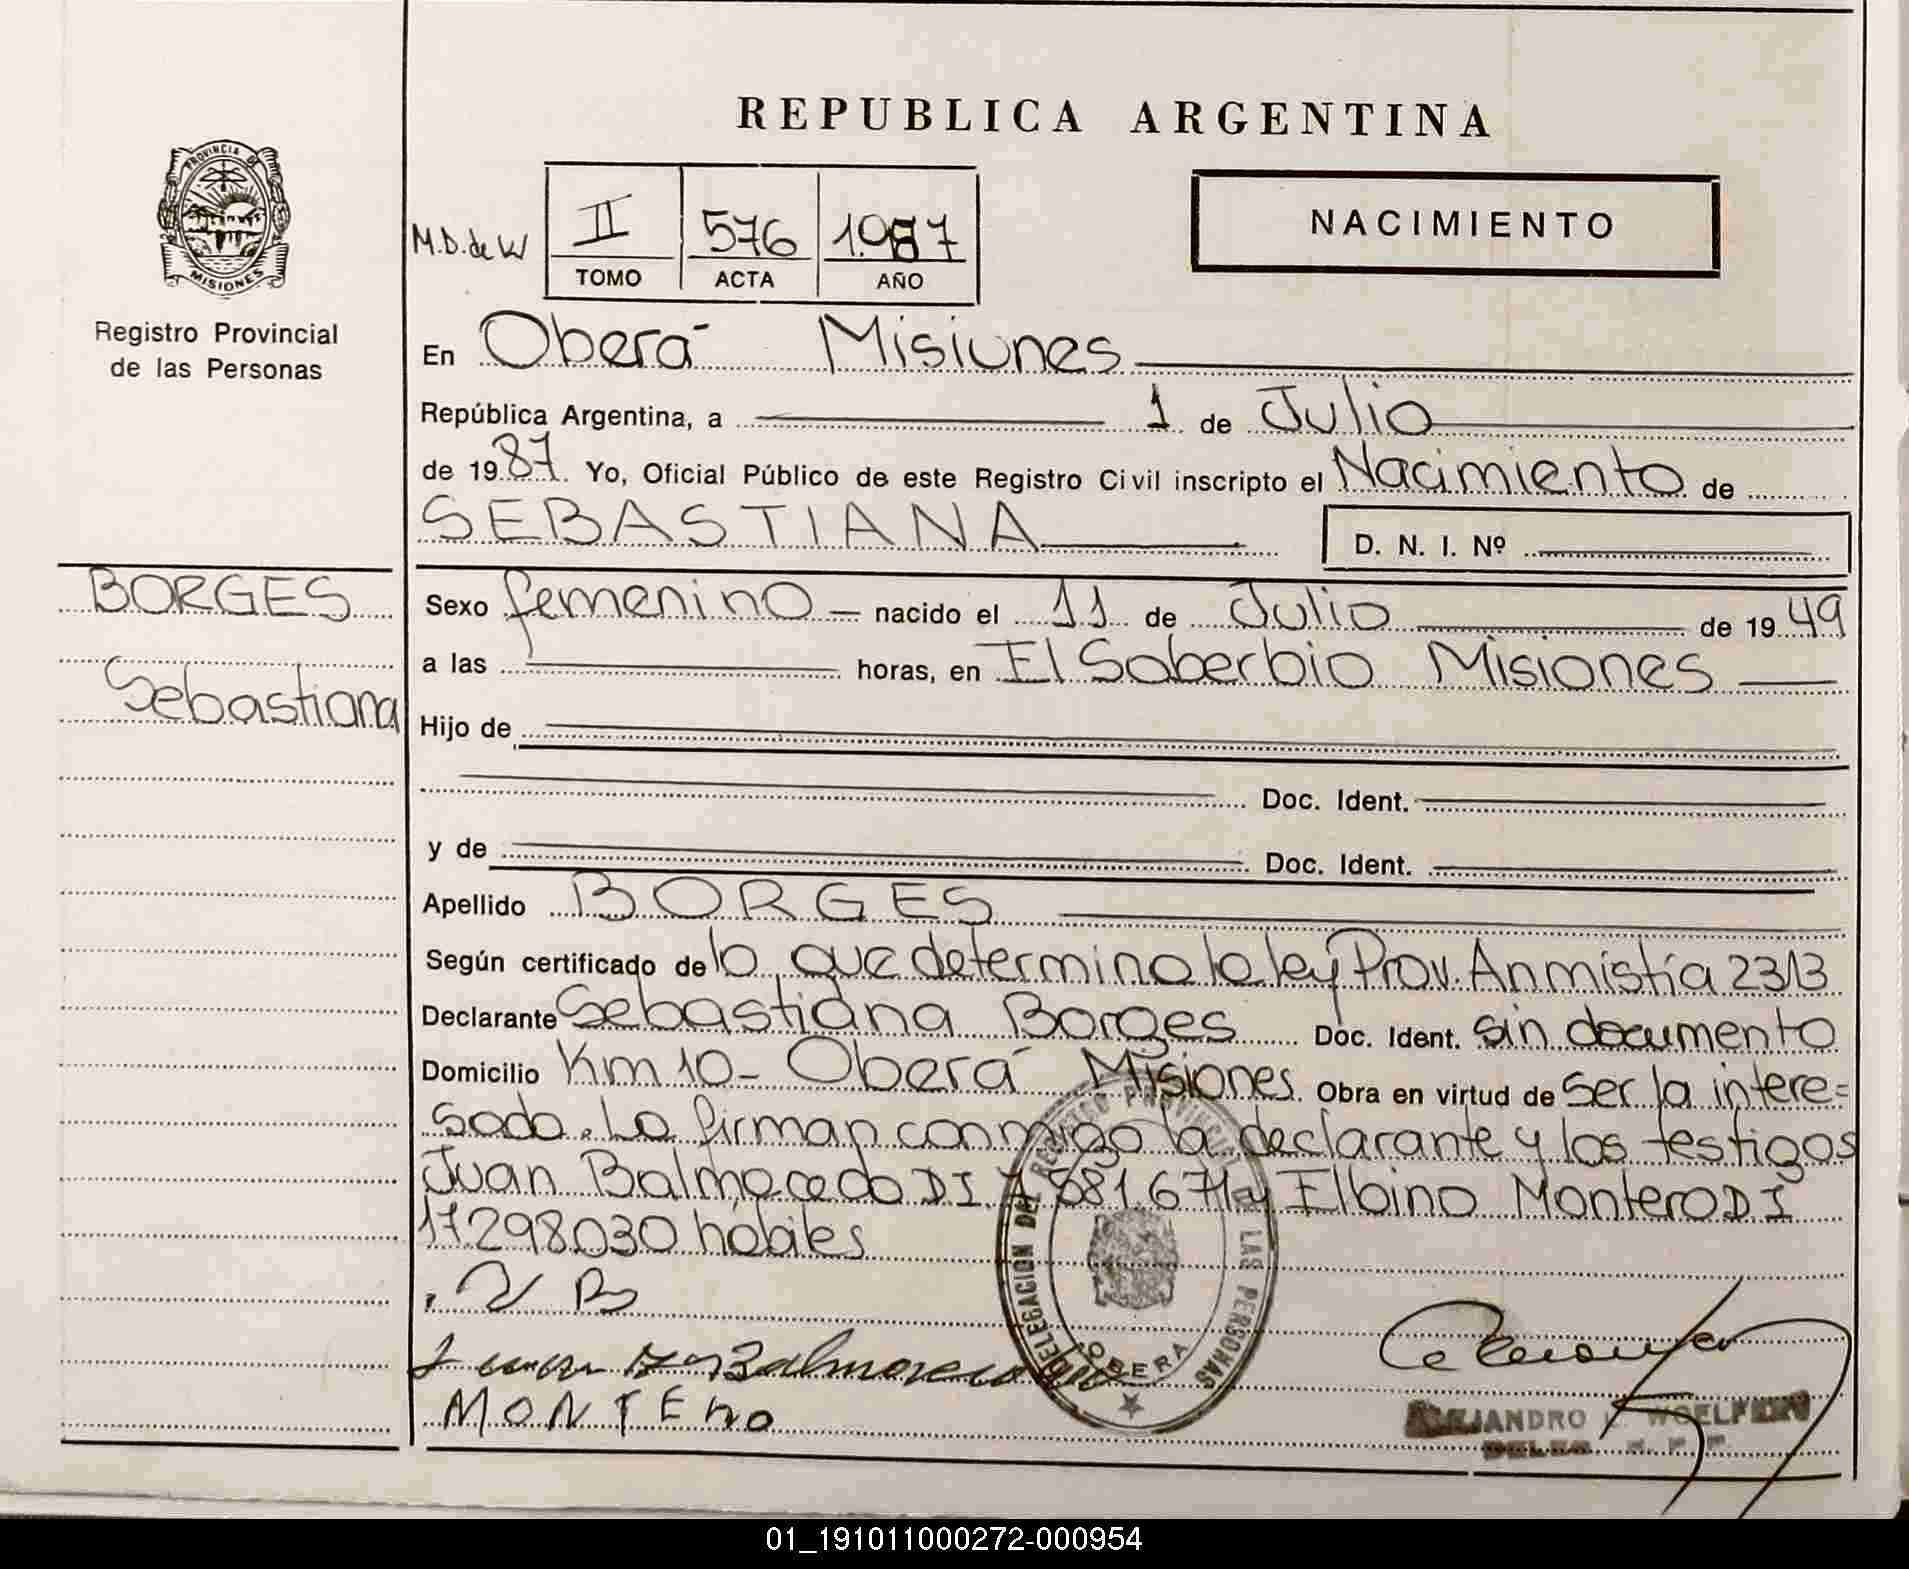 REPUBLICA ARGENTINA
PROVINCIA DE MISIONES
Registro Provincial
de las Personas
M.D. de W
II 576 1.987
TOMO ACTA AÑO
NACIMIENTO
En Oberá Misiones
República Argentina, a 1 de Julio
de 1987. Yo, Oficial Público de este Registro Civil inscripto el Nacimiento de
SEBASTIANA D. N. I. Nº
BORGES
Sebastiana
Sexo femenino nacido el 11 de Julio de 1949
a las horas, en El Soberbio Misiones
Hijo de
Doc. Ident.
y de Doc. Ident.
Apellido BORGES
Según certificado de lo que determina la ley Prov. Anmistía 2313
Declarante Sebastiana Borges Doc. Ident. sin documento
Domicilio Km 10 - Oberá Misiones. Obra en virtud de ser la intere=
sada. La firman conmigo la declarante y los testigos
Juan Balmaceda DI. 7 881.671 y Elbino Montero DI
17.298.030 hábiles
DELEGACION DEL REGISTRO PROVINCIAL DE LAS PERSONAS
OBERA
MONTERO
ALEJANDRO L. WOELFLIN
01_191011000272-000954